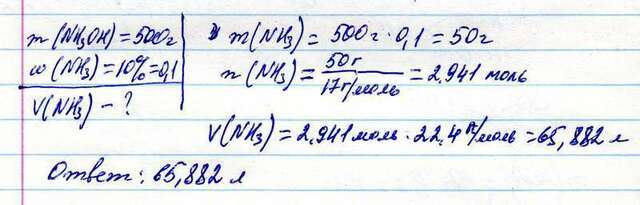 m(NH₃OH) = 500г
ω(NH₃) = 10% = 0,1
V(NH₃) - ?
m(NH₃) = 500г · 0,1 = 50г
n(NH₃) = 50г / 17г/моль = 2,941 моль
V(NH₃) = 2,941 моль · 22,4 л/моль = 65,882 л
Ответ: 65,882 л